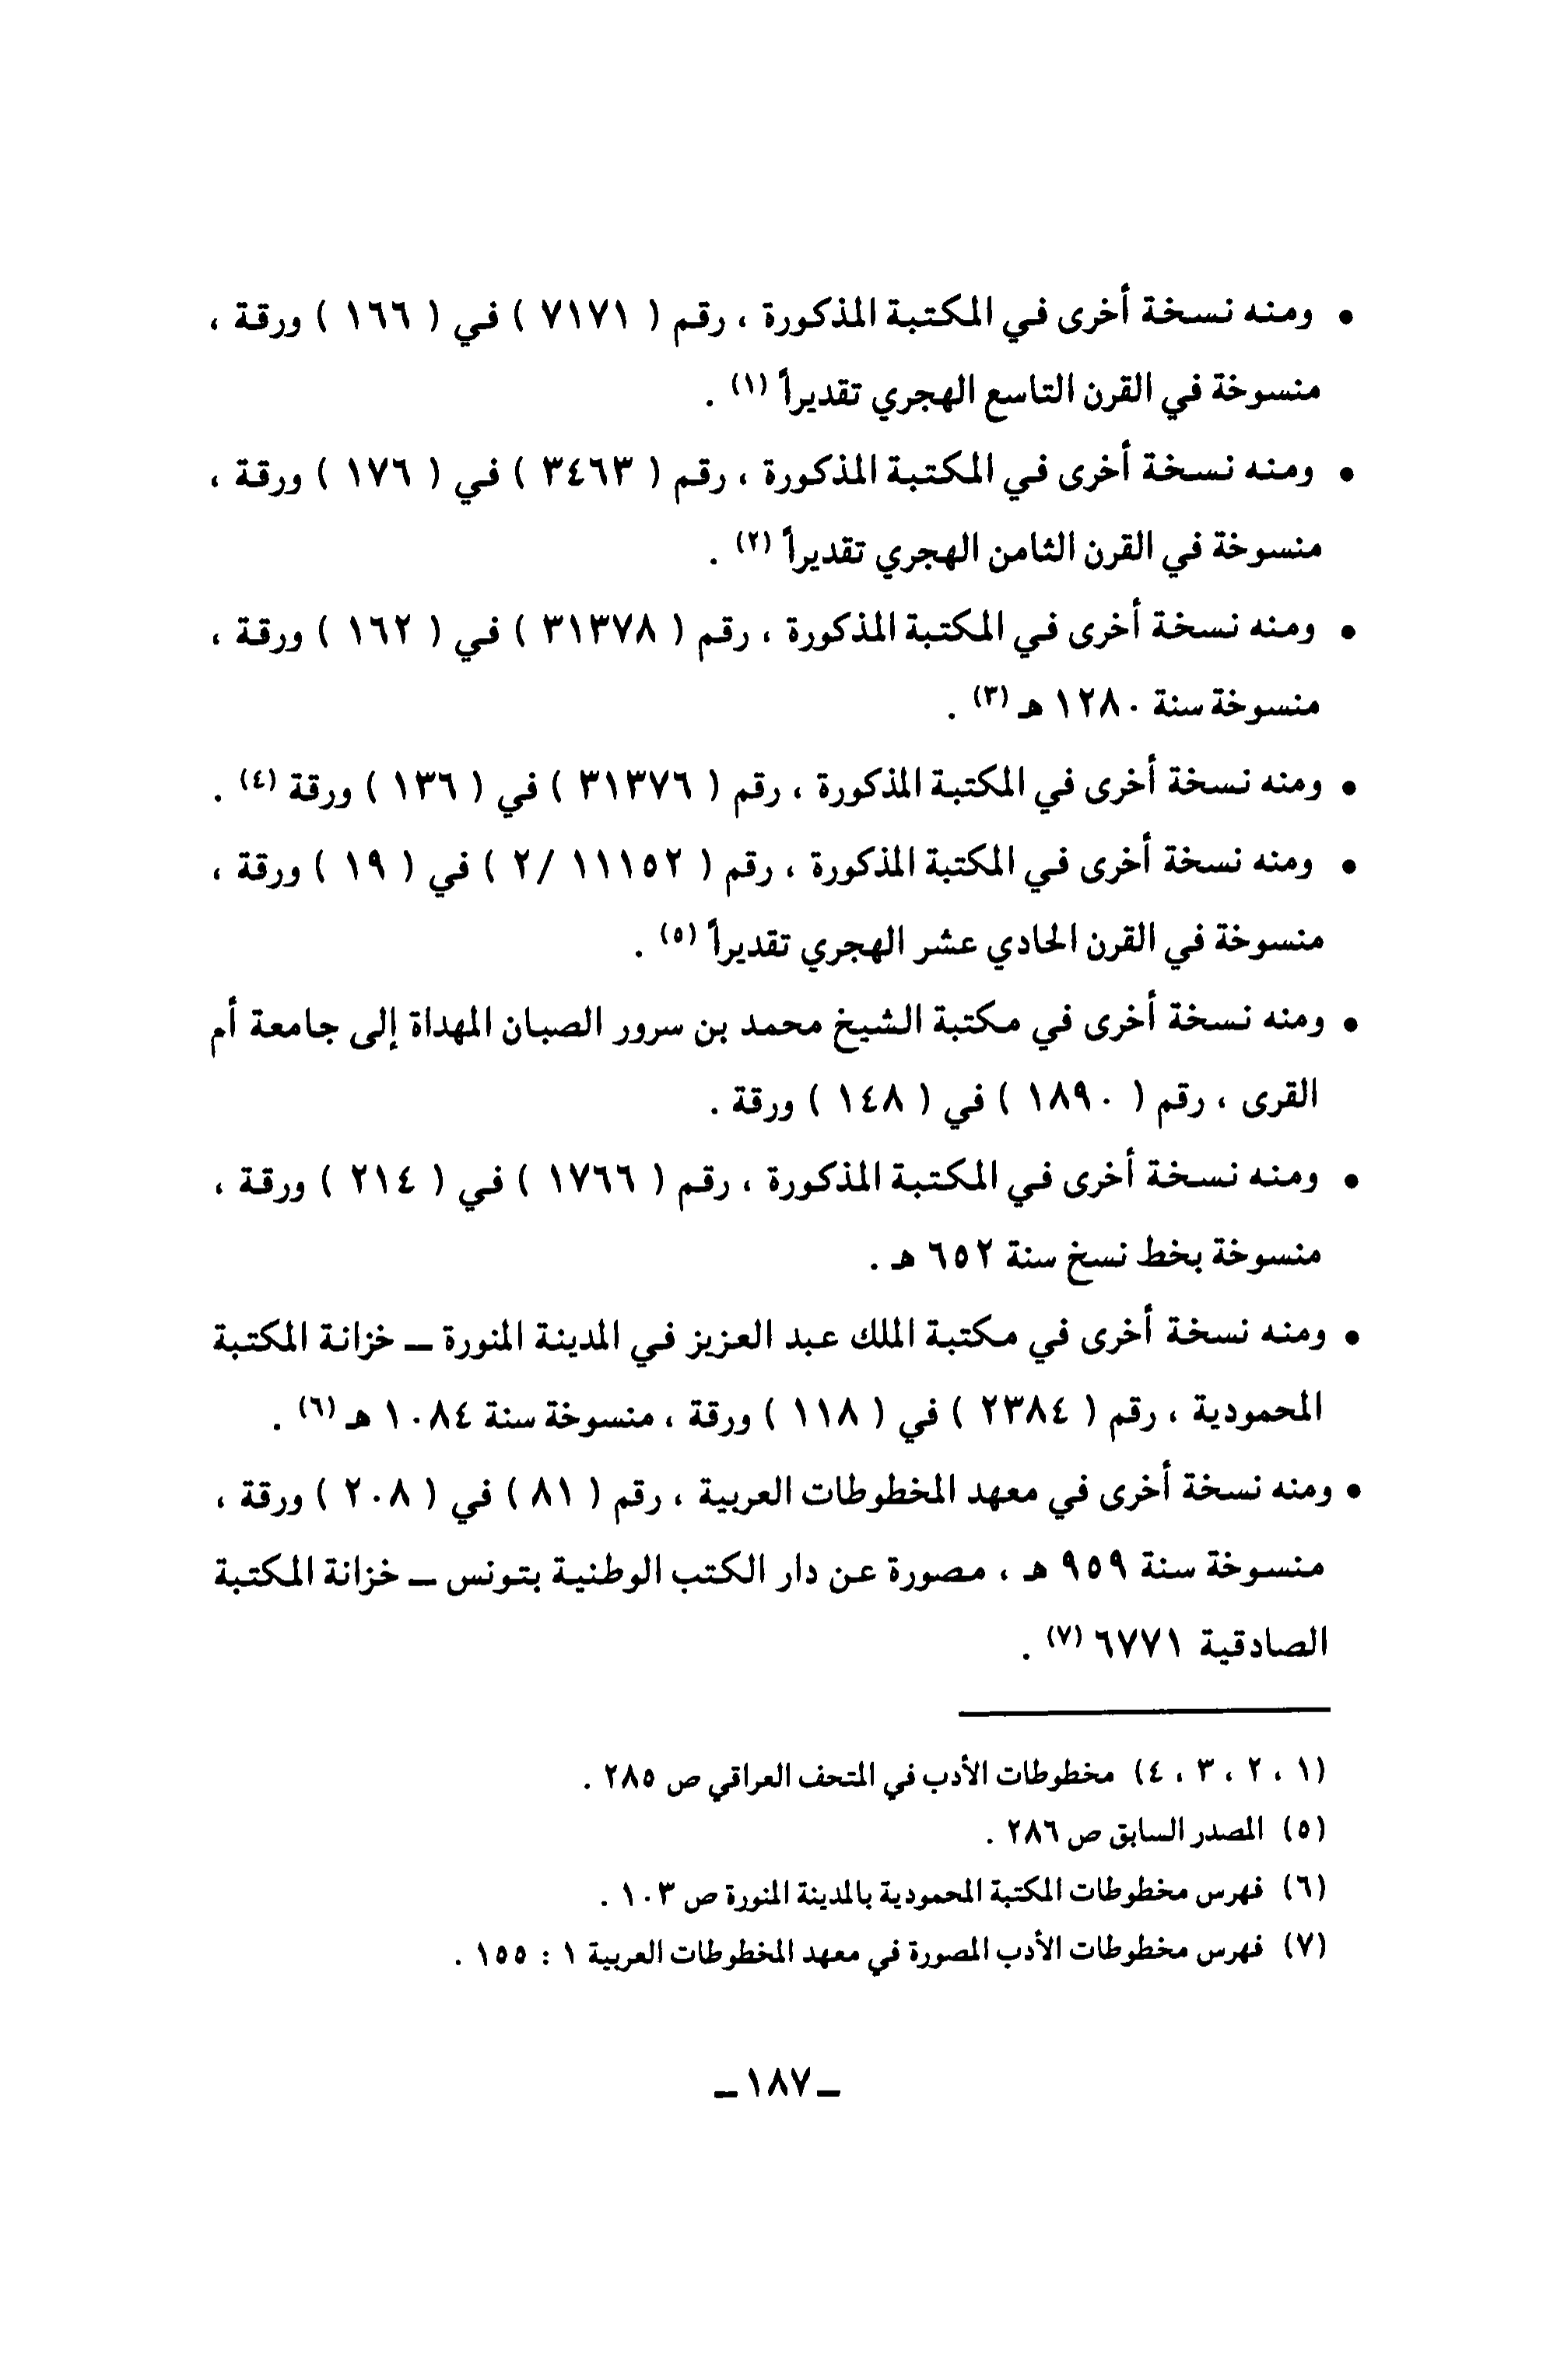 • ومنه نسخة أخرى في المكتبة المذكورة ، رقم ( ٧١٧١ ) في ( ١٦٦ ) ورقة ،
منسوخة في القرن التاسع الهجري تقديراً (١) .
• ومنه نسخة أخرى في المكتبة المذكورة ، رقم ( ٣٤٦٣ ) في ( ١٧٦ ) ورقة ،
منسوخة في القرن الثامن الهجري تقديراً (٢) .
• ومنه نسخة أخرى في المكتبة المذكورة ، رقم ( ٣١٣٧٨ ) في ( ١٦٢ ) ورقة ،
منسوخة سنة ١٢٨٠ هـ (٣) .
• ومنه نسخة أخرى في المكتبة المذكورة ، رقم ( ٣١٣٧٦ ) في ( ١٣٦ ) ورقة (٤) .
• ومنه نسخة أخرى في المكتبة المذكورة ، رقم ( ١١١٥٢ /٢ ) في ( ١٩ ) ورقة ،
منسوخة في القرن الحادي عشر الهجري تقديراً (٥) .
• ومنه نسخة أخرى في مكتبة الشيخ محمد بن سرور الصبان المهداة إلى جامعة أم
القرى ، رقم ( ١٨٩٠ ) في ( ١٤٨ ) ورقة .
• ومنه نسخة أخرى في المكتبة المذكورة ، رقم ( ١٧٦٦ ) في ( ٢١٤ ) ورقة ،
منسوخة بخط نسخ سنة ٦٥٢ هـ .
• ومنه نسخة أخرى في مكتبة الملك عبد العزيز في المدينة المنورة ــ خزانة المكتبة
المحمودية ، رقم ( ٢٣٨٤ ) في ( ١١٨ ) ورقة ، منسوخة سنة ١٠٨٤ هـ (٦) .
• ومنه نسخة أخرى في معهد المخطوطات العربية ، رقم ( ٨١ ) في ( ٢٠٨ ) ورقة ،
منسوخة سنة ٩٥٩ هـ ، مصورة عن دار الكتب الوطنية بتونس ــ خزانة المكتبة
الصادقية ٦٧٧١ (٧) .
(١ ، ٢ ، ٣ ، ٤) مخطوطات الأدب في المتحف العراقي ص ٢٨٥ .
(٥) المصدر السابق ص ٢٨٦ .
(٦) فهرس مخطوطات المكتبة المحمودية بالمدينة المنورة ص ١٠٣ .
(٧) فهرس مخطوطات الأدب المصورة في معهد المخطوطات العربية ١ : ١٥٥ .
ــ ١٨٧ ــ